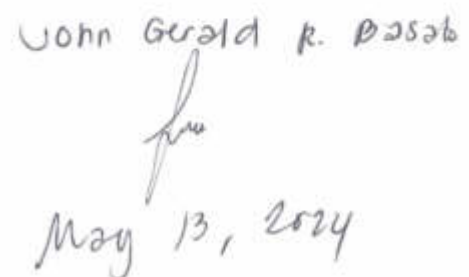 John Gerald R. Basab
May 13, 2024